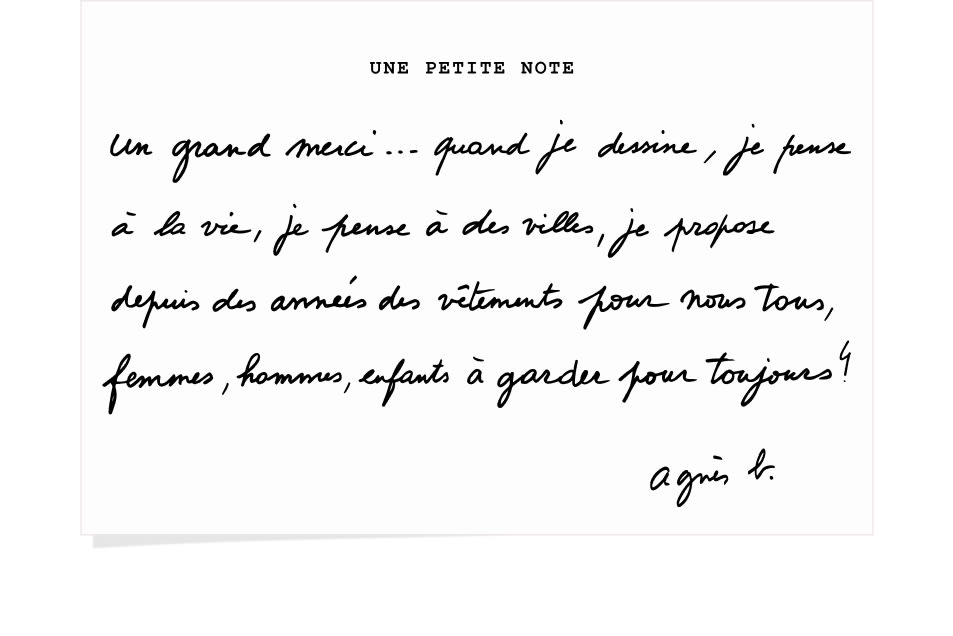 UNE PETITE NOTE
un grand merci... quand je dessine, je pense
à la vie, je pense à des villes, je propose
depuis des années des vêtements pour nous tous,
femmes, hommes, enfants à garder pour toujours!
agnès b.